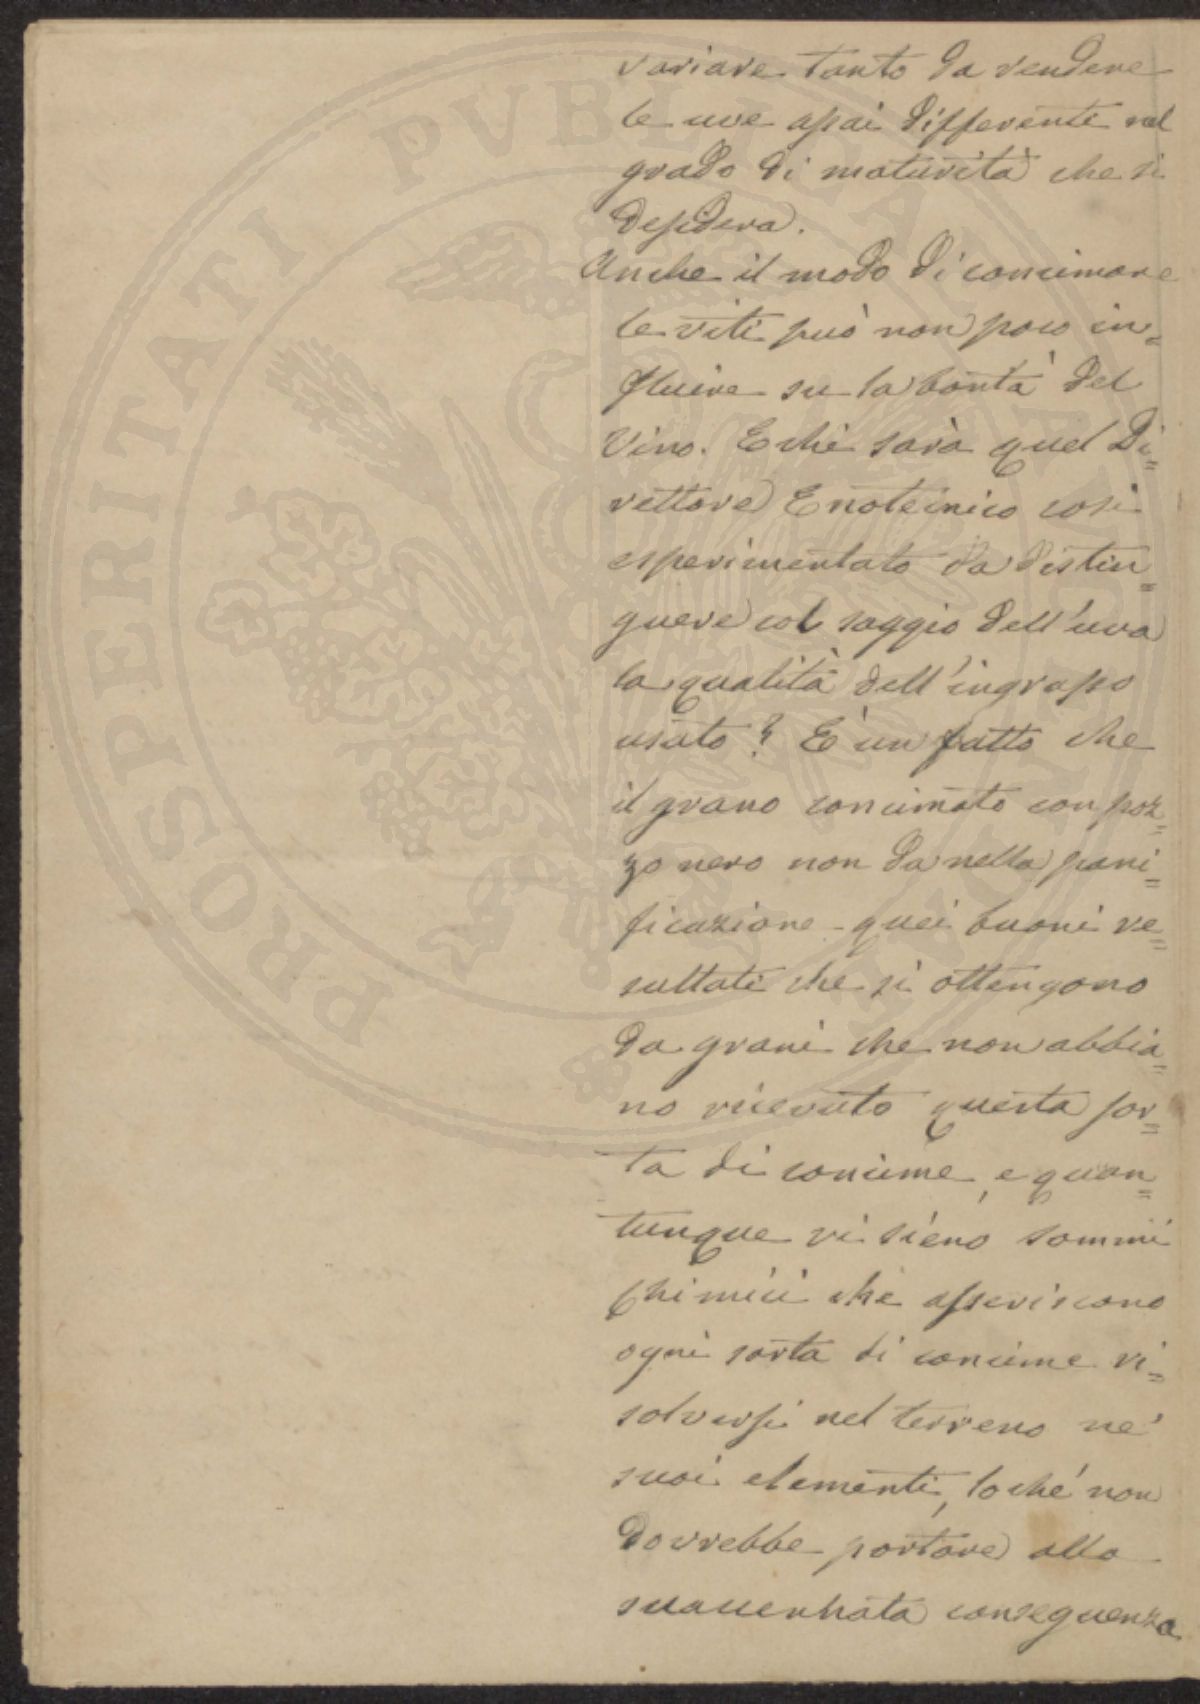 variare tanto da rendere
le uve assai differenti nel
grado di maturità che si
desidera.
Anche il modo di concimare
le viti può non poco in=
fluire su la bontà del
Vino. E chi sarà quel Di=
rettore Enotecnico così
esperimentato da distin=
guere col saggio dell'uva
la qualità dell'ingrasso
usato? È un fatto che
il grano concimato con poz=
zo nero non da nella pani=
ficazione quei buoni re=
sultati che si ottengono
da grani che non abbia=
no ricevuto questa sor=
ta di concime, e quan=
tunque vi sieno sommi
chimici che asseriscono
ogni sorta di concime ri=
solversi nel terreno ne'
suoi elementi, lo chè non
dovrebbe portare alla
suaccennata conseguenza
PROSPERITATI PVBLICAE